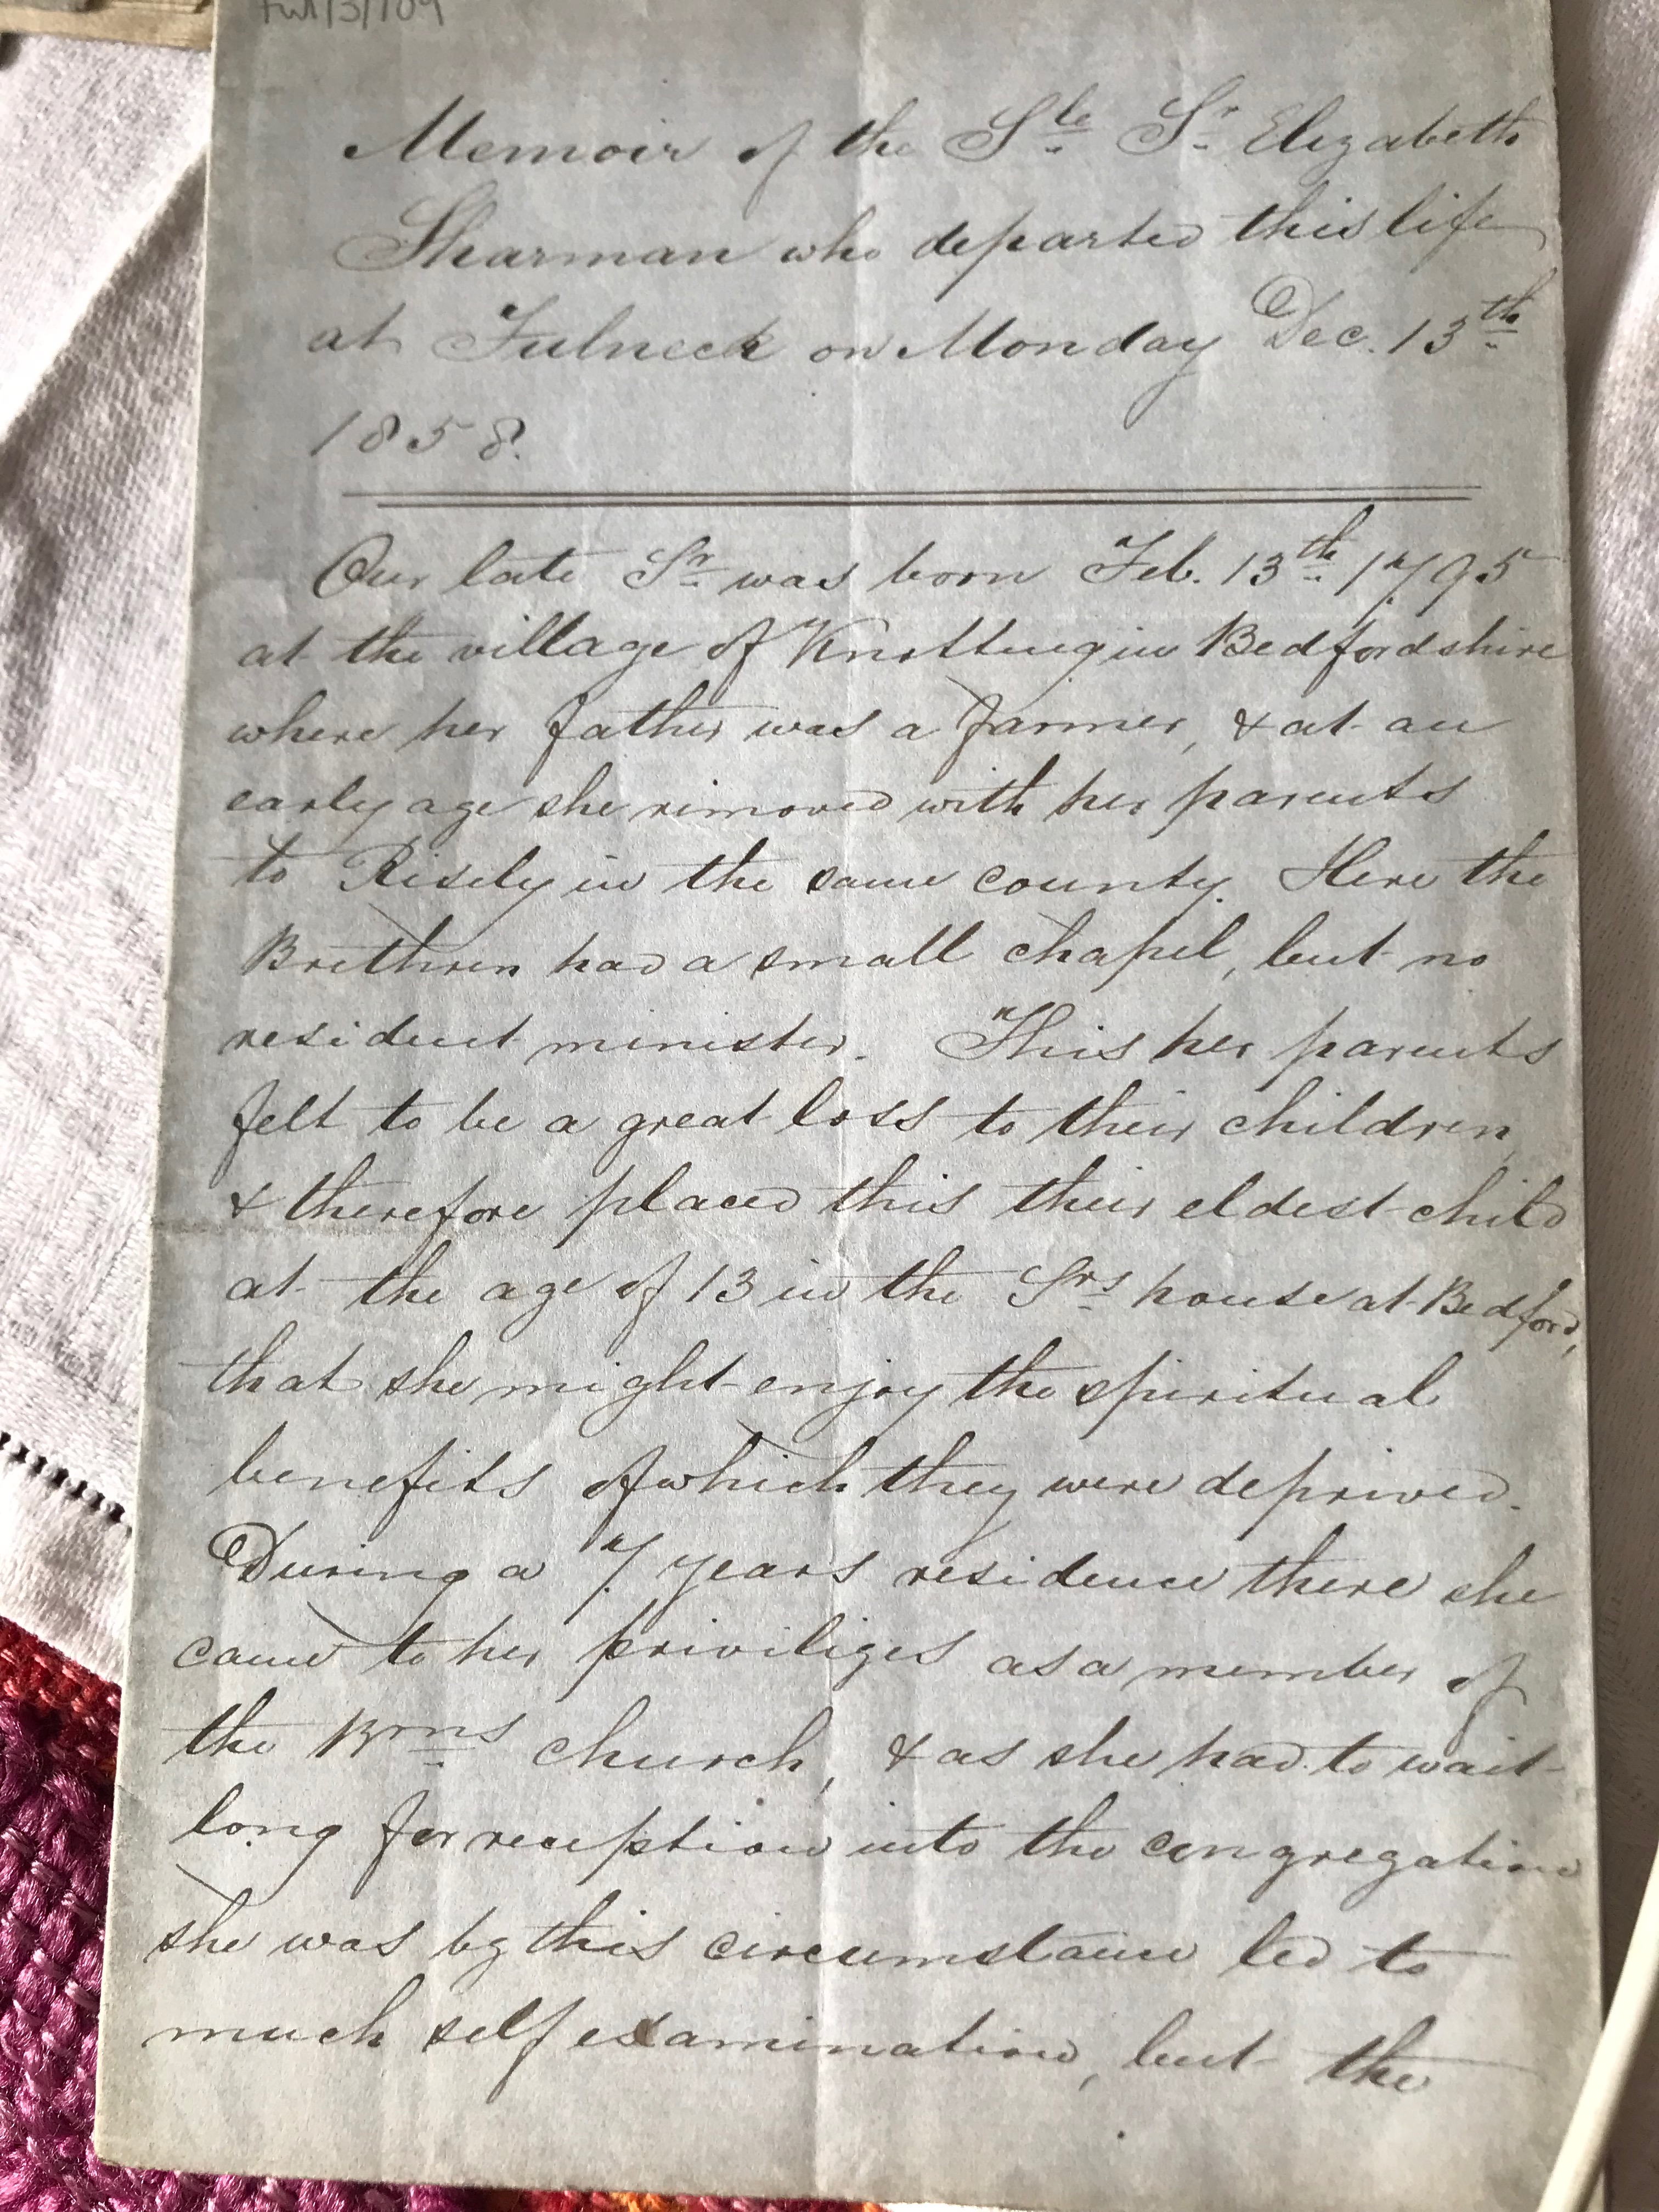 Memoir of the Sle Sr Elizabeth
Sharman who departed this life
at Fulneck on Monday Dec. 13th
1858.
Our late Sr was born Feb. 13th 1795
at the village of Knotting in Bedfordshire
where her father was a farmer, & at an
early age she removed with her parents
to Risely in the same county. Here the
Brethren had a small chapel, but no
resident minister. This her parents
felt to be a great loss to their children
& therefore placed this their eldest child
at the age of 13 in the Srs house at Bedford,
that she might enjoy the spiritual
benefits of which they were deprived.
During a 7 years residence there she
came to her priviliges as a member of
the Brns church, & as she had to wait
long for reception into the congregation
she was by this circumstance led to
much self examination, but the